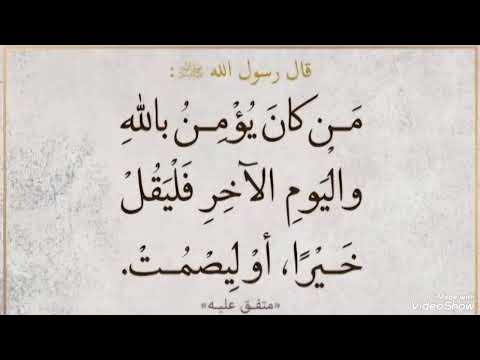 قال رسول الله ﷺ:
مَـن كانَ يُؤْمِـنُ باللهِ
والْيَومِ الآخِرِ فَلْيَقُلْ
خَـيْرًا، أوْ لِيصْمُـتْ.
«متفق عليه»
Made with
VideoShow